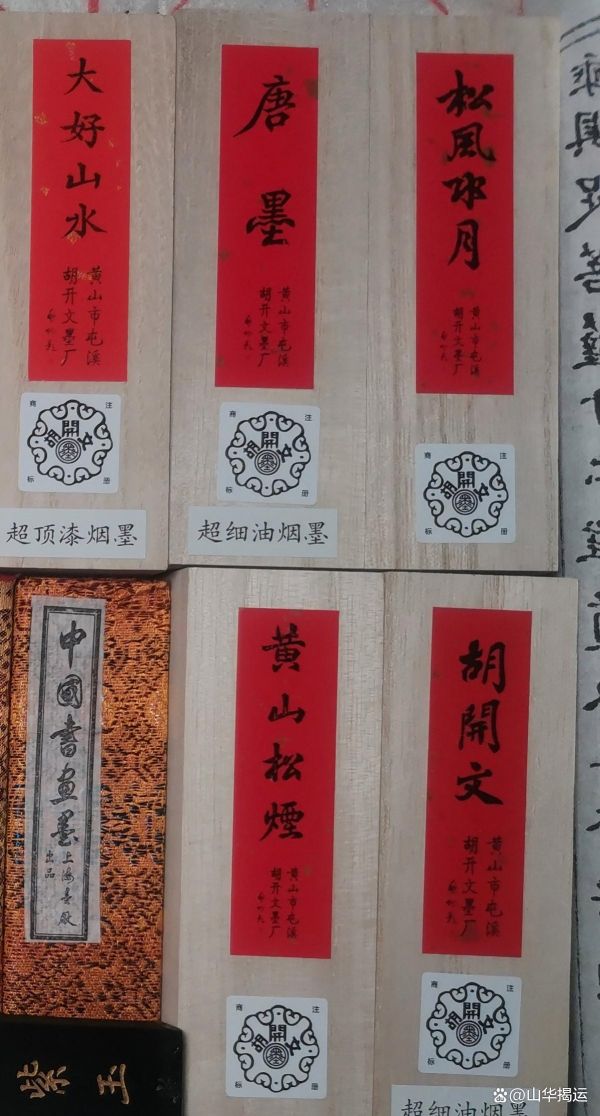 大好山水
黄山市屯溪
胡开文墨厂
商
注
標
册
胡開文
墨
超顶漆烟墨
唐墨
黄山市屯溪
胡开文墨厂
商
注
标
册
胡開文
墨
超细油烟墨
松風水月
黄山市屯溪
胡开文墨厂
商
注
标
册
胡開文
墨
中國書畫墨
上海墨厰
出品
黄山松煙
黄山市屯溪
胡开文墨厂
商
注
标
册
胡開文
墨
胡開文
黄山市屯溪
胡开文墨厂
商
注
标
册
胡開文
墨
超细油烟墨
紫玉
@山华揭运